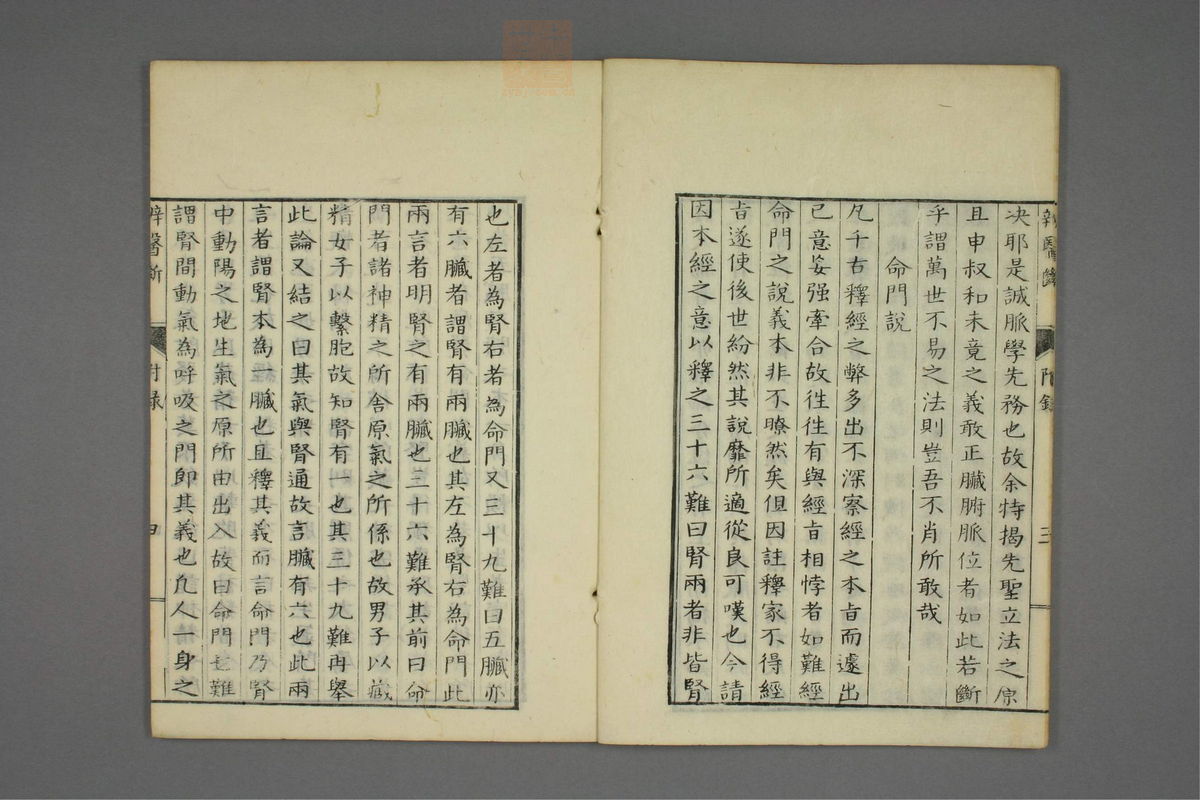 決耶是誠脈學先務也故余特揭先聖立法之原
且申叔和未竟之義敢正臟腑脈位者如此若斷
乎謂萬世不易之法則豈吾不肖所敢哉
命門說
凡千古釋經之弊多出不深察經之本旨而遽出
已意妄强牽合故徃徃有與經旨相悖者如難經
命門之說義本非不瞭然矣但因註釋家不得經
旨遂使後世紛然其說靡所適從良可嘆也今請
因本經之意以釋之三十六難曰腎兩者非皆腎
也左者為腎右者為命門又三十九難曰五臟亦
有六臟者謂腎有兩臟也其左為腎右為命門此
兩言者明腎之有兩臟也三十六難承其前曰命
門者諸神精之所舍原氣之所係也故男子以藏
精女子以繫胞故知腎有一也其三十九難再舉
此論又結之曰其氣與腎通故言臟有六也此兩
言者謂腎本為一臟也且釋其義而言命門乃腎
中動陽之地生氣之原所由出入故曰命門也難
謂腎間動氣為呼吸之門即其義也凡人一身之
辨醫斷
附錄